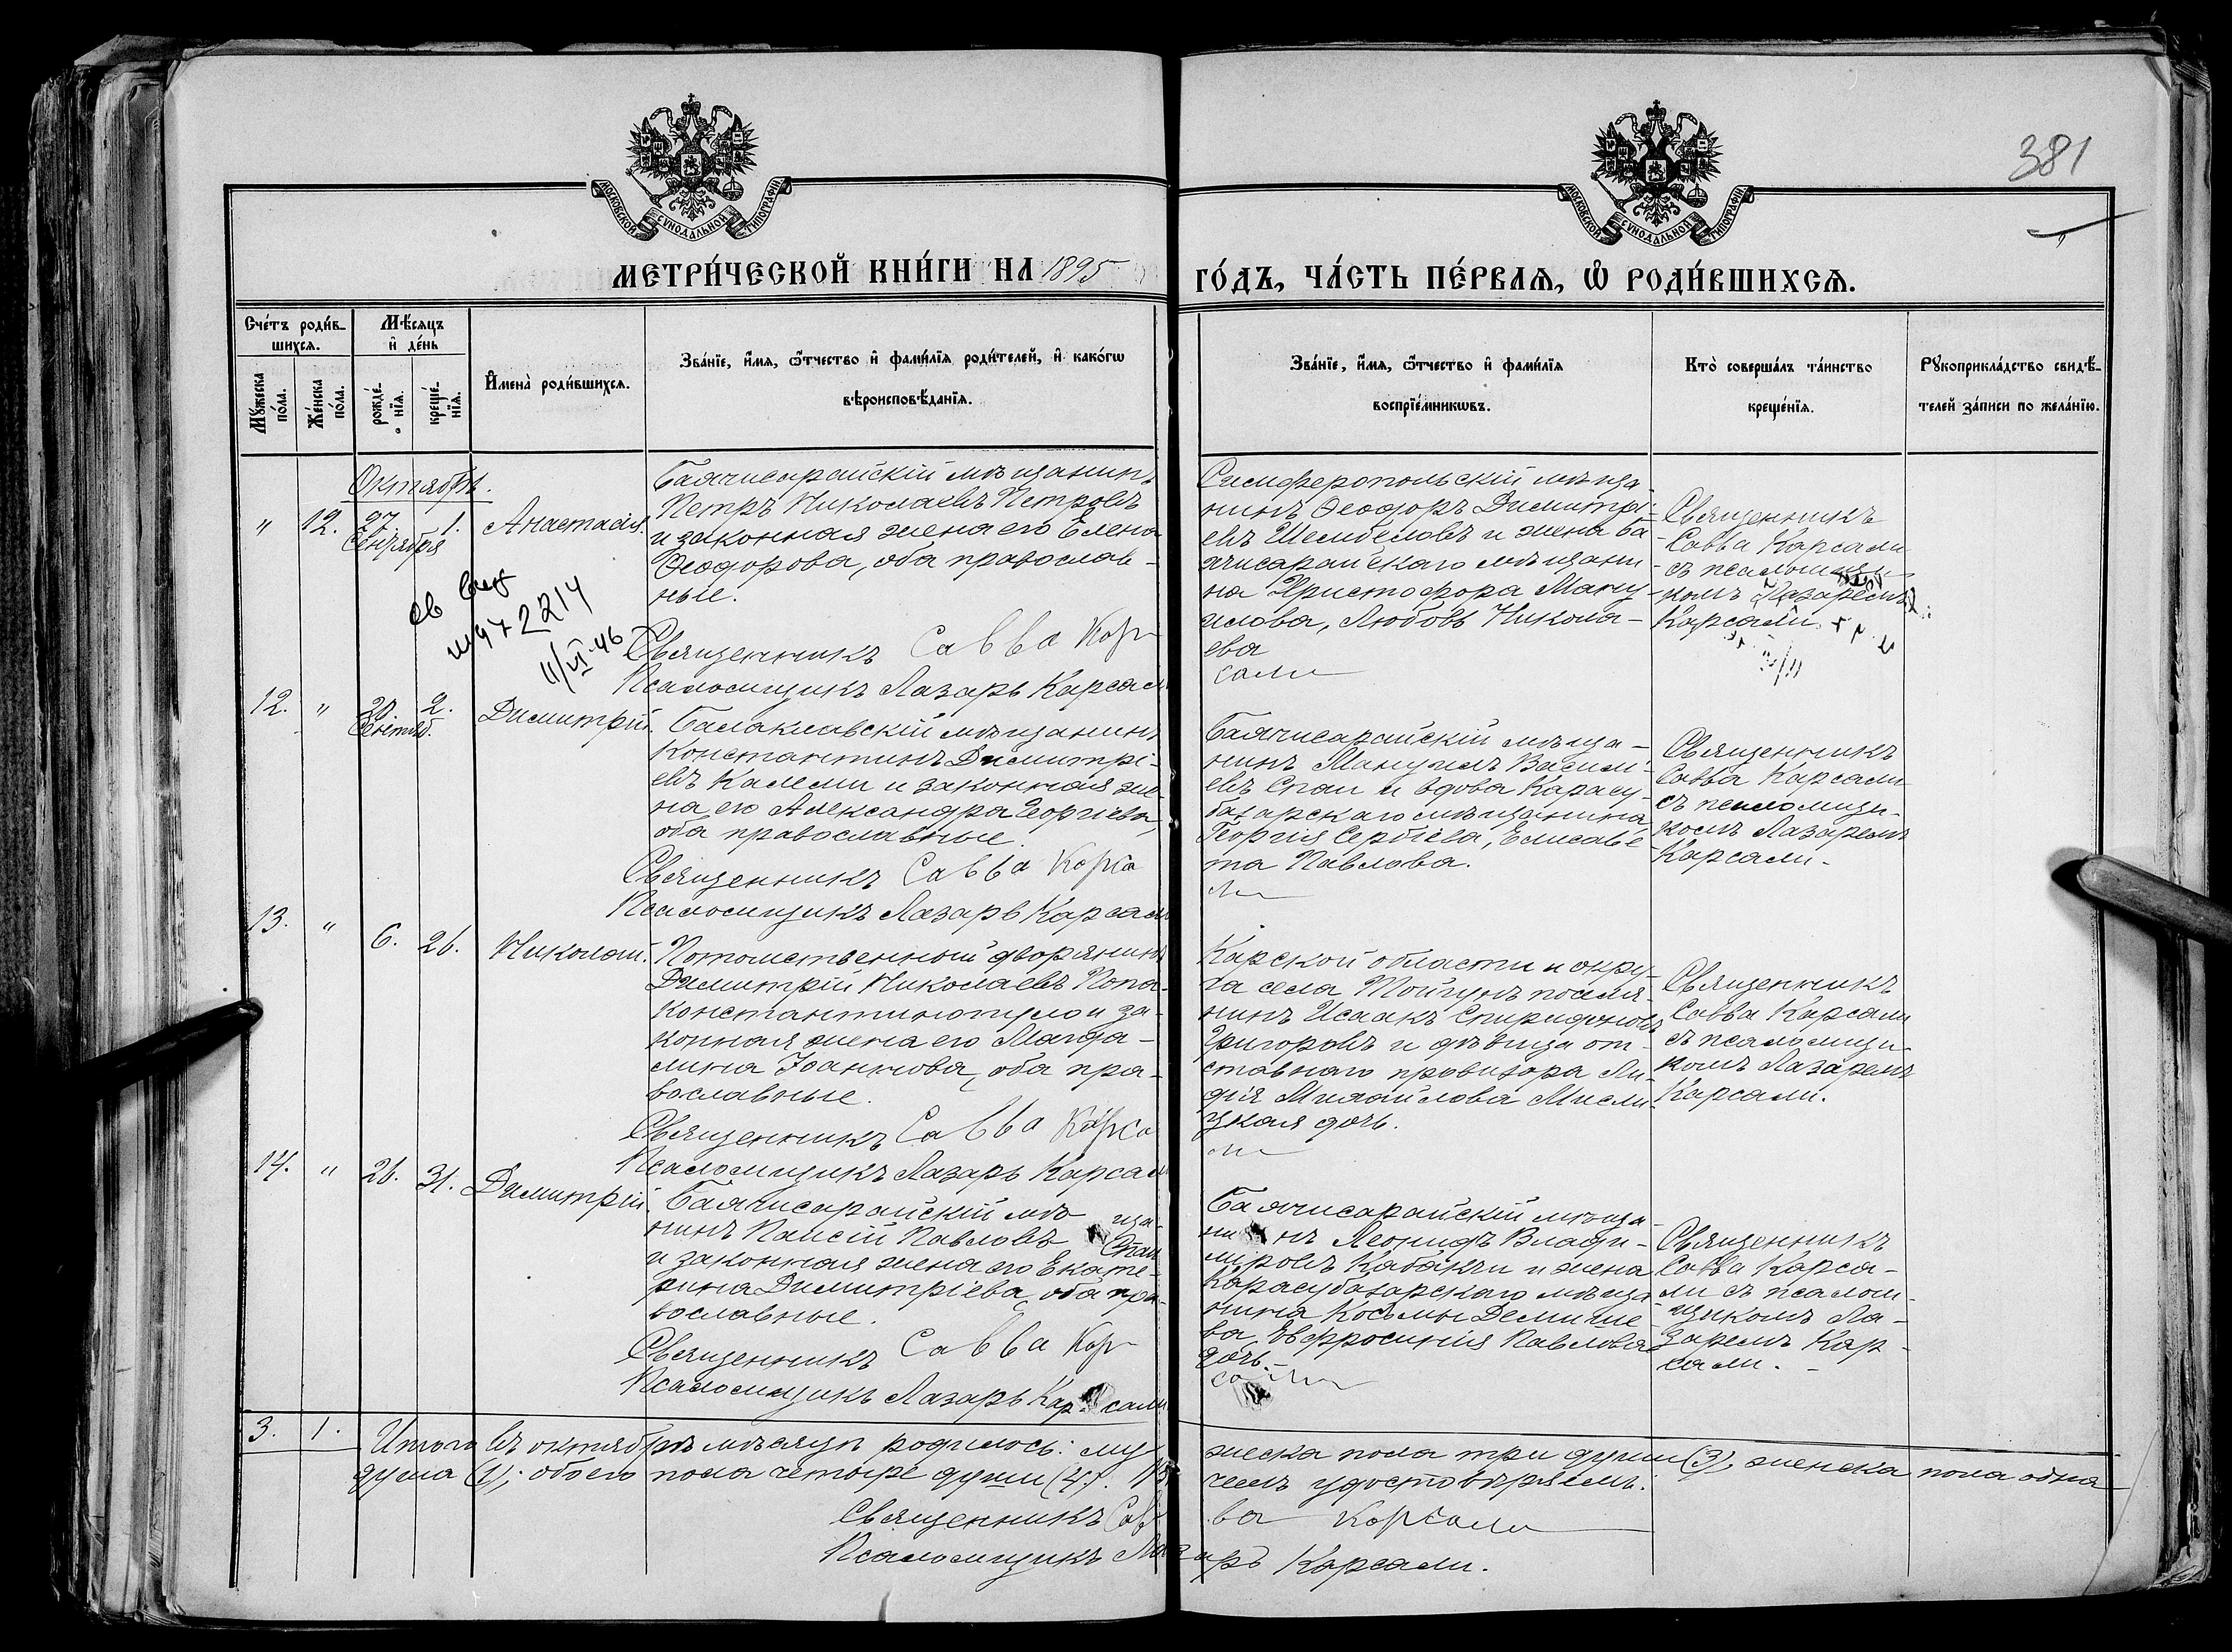 381
МОСКОВСКОЙ СѴНОДАЛЬНОЙ ТИПОГРАФІИ
МОСКОВСКОЙ СѴНОДАЛЬНОЙ ТИПОГРАФІИ
МЕТРИ́ЧЕСКОЙ КНИ́ГИ НА 1895
ГО́ДЪ, ЧА́СТЬ ПЕ́РВАѦ, Ѽ РОДИ́ВШИХСѦ.
Сче́тъ роди́в-
шихсѧ.
Мꙋ́жеска
по́ла.
Же́нска
по́ла.
Мѣ́сѧцъ
и҆ де́нь
рожде́-
нїѧ.
креще́-
нїѧ.
И҆мена̀ роди́вшихсѧ.
Зва́нїе, и҆́мѧ, ѻ҆́тчество и҆ фами́лїѧ роди́телей, и҆ како́гѡ
вѣроисповѣ́данїѧ.
Зва́нїе, и҆́мѧ, ѻ҆́тчество и҆ фами́лїѧ
воспрїе́мникѡвъ.
Кто̀ соверша́лъ та́инство
креще́нїѧ.
Рꙋкоприкла́дство свидѣ́-
телей за́писи по жела́нїю.
Октябрь.
" 12. 27. 1. Анастасія.
Сентября
Бахчисарайскій мѣщанинъ
Петръ Николаевъ Петровъ
и законная жена его Елена
Ѳеодорова, оба православ-
ные.
Священникъ Савва Кар
Псаломщикъ Лазарь Карсали
Симферопольскій мѣща-
нинъ Ѳеодоръ Димитрі-
евъ Шелибеловъ и жена ба-
хчисарайскаго мѣщани-
на Христофора Ману-
илова, Любовь Никола-
ева
сали
Священникъ
Савва Карсали
съ псаломщи-
комъ Лазаремъ
Карсали.
2214
11/VI 46
12. " 2. Димитрій.
Сентяб.
Балаклавскій мѣщанинъ
Константинъ Димитрі-
евъ Калеми и законная же-
на его Александра Георгіева,
оба православные.
Священникъ Савва Карса
Псаломщикъ Лазарь Карсали
Бахчисарайскій мѣща-
нинъ Мануилъ Василі-
евъ Спаи и вдова Карасу-
базарскаго мѣщанина
Георгія Сербіева, Елисаве-
та Павлова.
ли
Священникъ
Савва Карсали
съ псаломщи-
комъ Лазаремъ
Карсали.
13. " 6. 26. Николай.
Потомственный дворянинъ
Димитрій Николаевъ Попа-
константинопуло и за-
конная жена его Магда-
лина Іоаннова, оба пра-
вославные.
Священникъ Савва Карса
Псаломщикъ Лазарь Карсали
Карской области и окру-
га села Тойгунъ поселя-
нинъ Исаакъ Спиридоновъ
Григоровъ и дѣвица от-
ставнаго провизора Ли-
дія Михайлова Мисли-
цкая дочь.
ли
Священникъ
Савва Карсали
съ псаломщи-
комъ Лазаремъ
Карсали.
14. " 26. 31. Димитрій.
Бахчисарайскій мѣща-
нинъ Паисій Павловъ Спаи
и законная жена его Екате-
рина Димитріева, оба пра-
вославные.
Священникъ Савва Кар
Псаломщикъ Лазарь Карсали
Бахчисарайскій мѣща-
нинъ Леонидъ Влади-
міровъ Кабакчи и жена
Карасубазарскаго мѣща-
нина Косьмы Демише-
ва, Евфросинія Павлова
дочь.
сали
Священникъ
Савва Карса-
ли съ псалом-
щикомъ Ла-
заремъ Кар-
сали.
3. 1. Итого въ октябрѣ мѣсяцѣ родилось: му-
жеска пола три души (3), женска пола одна
душа (1); обоего пола четыре души (4). Въ
чемъ удостовѣряемъ:
Священникъ Савва Карсали
Псаломщикъ Лазарь Карсали.